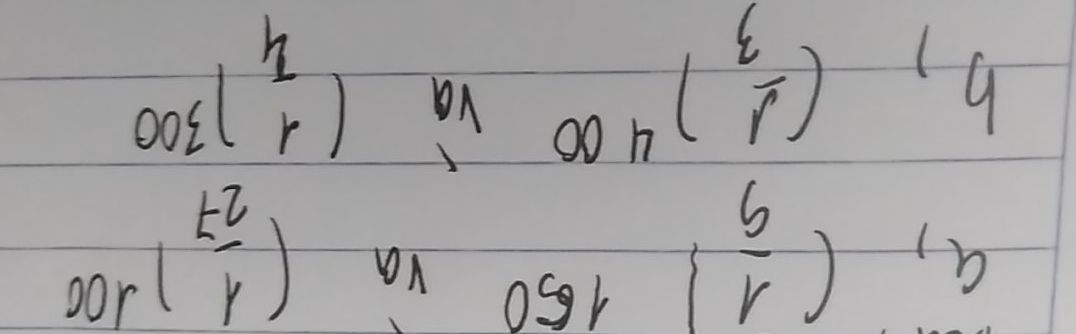 a, (1/9)^150 và (1/27)^100
b, (1/3)^400 và (1/4)^300